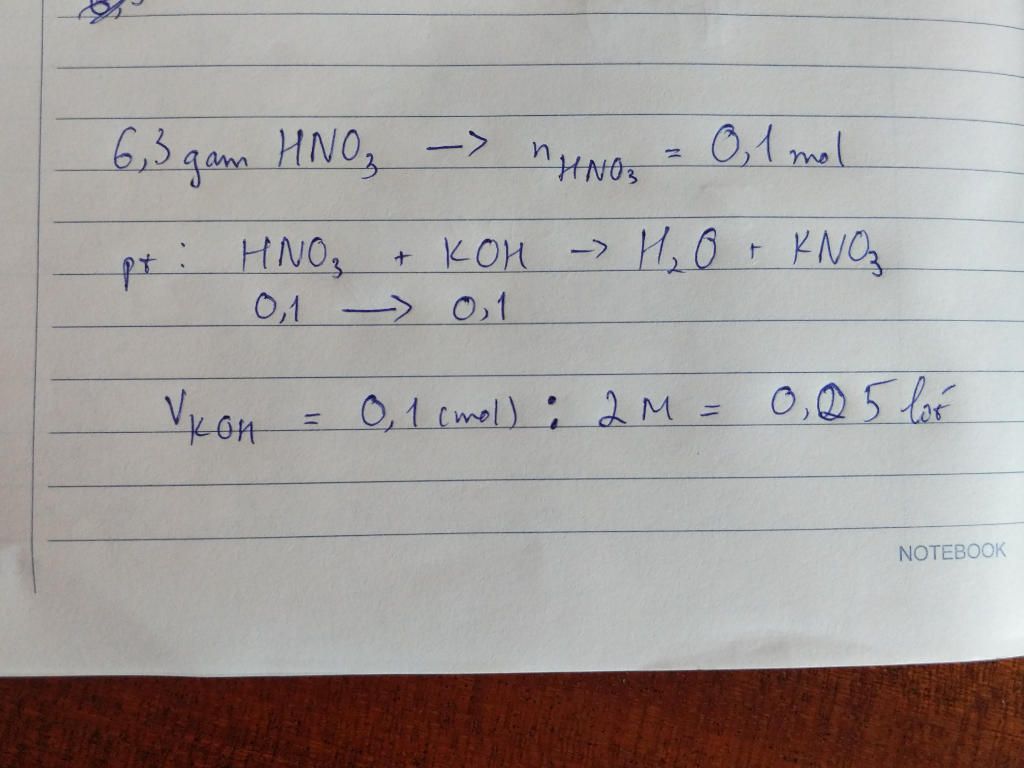 6,3 gam HNO₃ -> n HNO₃ = 0,1 mol
pt : HNO₃ + KOH -> H₂O + KNO₃
0,1 -> 0,1
V KOH = 0,1 (mol) : 2 M = 0,025 lít
NOTEBOOK